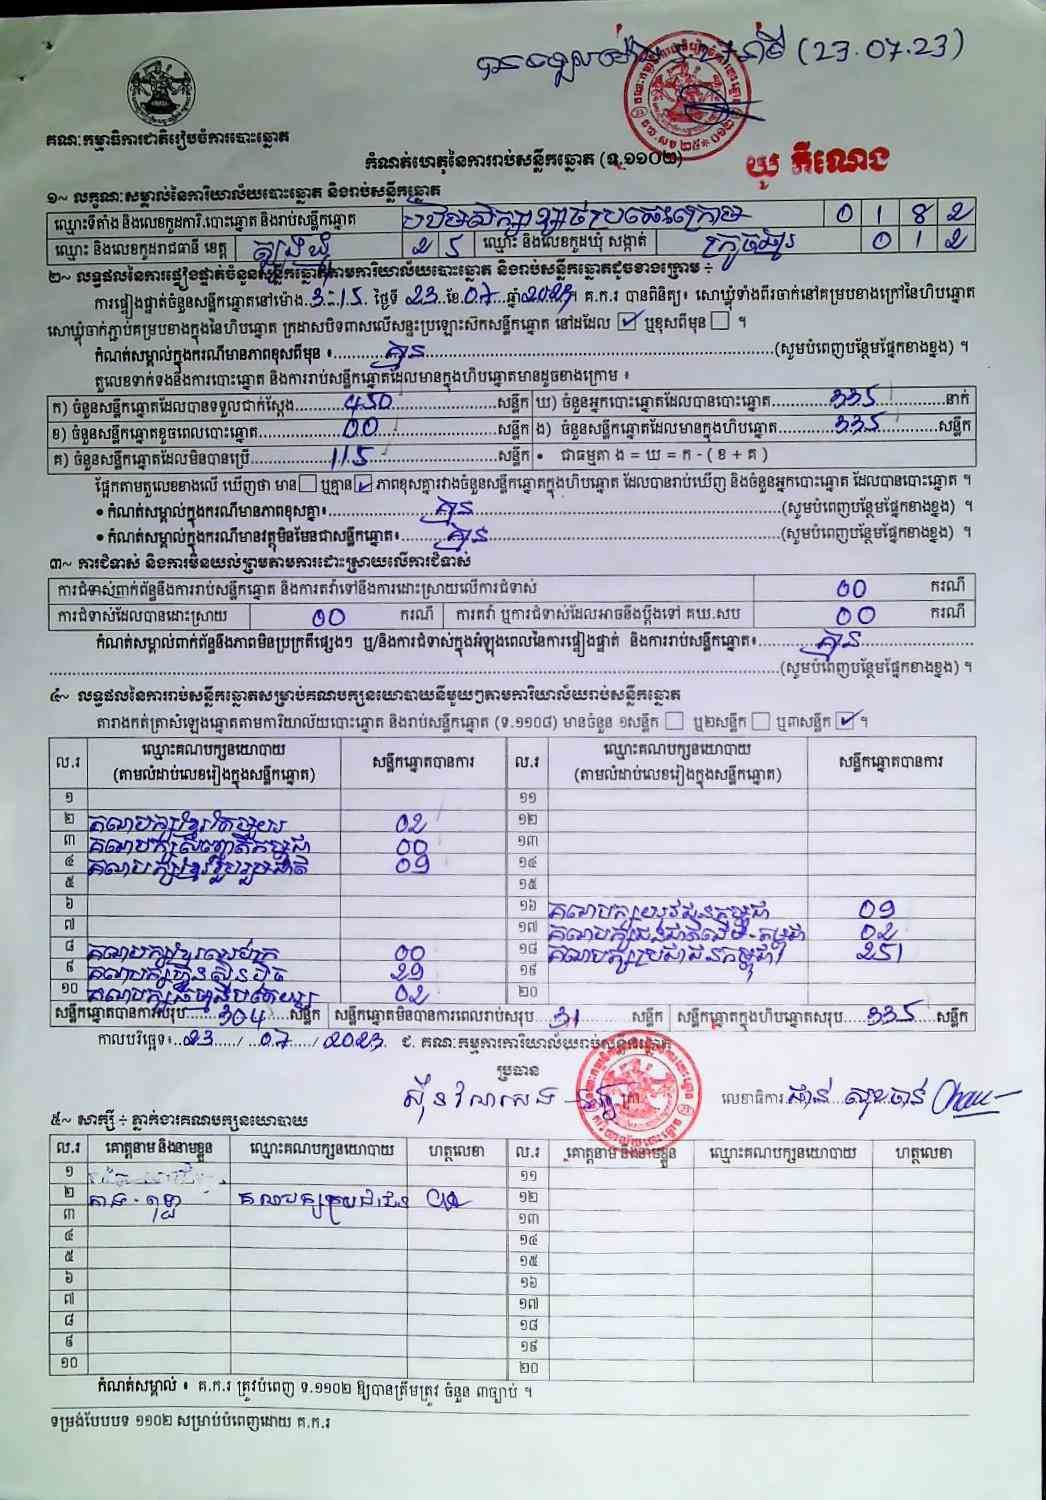 (23.07.23)
គណៈកម្មាធិការជាតិរៀបចំការបោះឆ្នោត
កំណត់ហេតុនៃការរាប់សន្លឹកឆ្នោត (ទ.១១០២)
យូ គីណេង
១~ លក្ខណៈសម្គាល់នៃការិយាល័យបោះឆ្នោត និងរាប់សន្លឹកឆ្នោត
ឈ្មោះទីតាំង និងលេខកូដការិ.បោះឆ្នោត និងរាប់សន្លឹកឆ្នោត 0 1 8 2
ឈ្មោះ និងលេខកូដរាជធានី ខេត្ត ត្បូងឃ្មុំ 2 5 ឈ្មោះ និងលេខកូដឃុំ សង្កាត់ 0 1 2
២~ លទ្ធផលនៃការផ្ទៀងផ្ទាត់ចំនួនសន្លឹកឆ្នោតតាមការិយាល័យបោះឆ្នោត និងរាប់សន្លឹកឆ្នោតដូចខាងក្រោម ÷
ការផ្ទៀងផ្ទាត់ចំនួនសន្លឹកឆ្នោតនៅម៉ោង 3:15 ថ្ងៃទី 23 ខែ 07 ឆ្នាំ 2023។ គ.ក.រ បានពិនិត្យ៖ សោឃ្លុំទាំងពីរចាក់នៅគម្របខាងក្រៅនៃហិបឆ្នោត
សោឃ្លុំចាក់ភ្ជាប់គម្របខាងក្នុងនៃហិបឆ្នោត ក្រដាសបិទពាសលើសន្ទះប្រឡោះស៊កសន្លឹកឆ្នោត នៅដដែល ☑ ឬខុសពីមុន ☐ ។
កំណត់សម្គាល់ក្នុងករណីមានភាពខុសពីមុន ៖ គ្មាន (សូមបំពេញបន្ថែមផ្នែកខាងខ្នង) ។
តួលេខទាក់ទងនឹងការបោះឆ្នោត និងការរាប់សន្លឹកឆ្នោតដែលមានក្នុងហិបឆ្នោតមានដូចខាងក្រោម ៖
ក) ចំនួនសន្លឹកឆ្នោតដែលបានទទួលជាក់ស្តែង 450 សន្លឹក ឃ) ចំនួនអ្នកបោះឆ្នោតដែលបានបោះឆ្នោត 335 នាក់
ខ) ចំនួនសន្លឹកឆ្នោតខូចពេលបោះឆ្នោត 00 សន្លឹក ង) ចំនួនសន្លឹកឆ្នោតដែលមានក្នុងហិបឆ្នោត 335 សន្លឹក
គ) ចំនួនសន្លឹកឆ្នោតដែលមិនបានប្រើ 115 សន្លឹក • ជាធម្មតា ង = ឃ = ក - ( ខ + គ )
ផ្អែកតាមតួលេខខាងលើ ឃើញថា មាន ☐ ឬគ្មាន ☑ ភាពខុសគ្នារវាងចំនួនសន្លឹកឆ្នោតក្នុងហិបឆ្នោត ដែលបានរាប់ឃើញ និងចំនួនអ្នកបោះឆ្នោត ដែលបានបោះឆ្នោត ។
• កំណត់សម្គាល់ក្នុងករណីមានភាពខុសគ្នា៖ គ្មាន (សូមបំពេញបន្ថែមផ្នែកខាងខ្នង) ។
• កំណត់សម្គាល់ក្នុងករណីមានវត្ថុមិនមែនជាសន្លឹកឆ្នោត៖ គ្មាន (សូមបំពេញបន្ថែមផ្នែកខាងខ្នង) ។
៣~ ការជំទាស់ និងការមិនយល់ព្រមតាមការដោះស្រាយលើការជំទាស់
ការជំទាស់ពាក់ព័ន្ធនឹងការរាប់សន្លឹកឆ្នោត និងការតវ៉ាទៅនឹងការដោះស្រាយលើការជំទាស់ 00 ករណី
ការជំទាស់ដែលបានដោះស្រាយ 00 ករណី ការតវ៉ា ឬការជំទាស់ដែលអាចនឹងប្តឹងទៅ គឃ.សប 00 ករណី
កំណត់សម្គាល់ពាក់ព័ន្ធនឹងភាពមិនប្រក្រតីផ្សេងៗ ឬ/និងការជំទាស់ក្នុងអំឡុងពេលនៃការផ្ទៀងផ្ទាត់ និងការរាប់សន្លឹកឆ្នោត៖ គ្មាន
(សូមបំពេញបន្ថែមផ្នែកខាងខ្នង) ។
៤~ លទ្ធផលនៃការរាប់សន្លឹកឆ្នោតសម្រាប់គណបក្សនយោបាយនីមួយៗតាមការិយាល័យរាប់សន្លឹកឆ្នោត
តារាងកត់ត្រាសំឡេងឆ្នោតតាមការិយាល័យបោះឆ្នោត និងរាប់សន្លឹកឆ្នោត (ទ.១១០៨) មានចំនួន ១សន្លឹក ☐ ឬ២សន្លឹក ☐ ឬ៣សន្លឹក ☑ ។
ល.រ ឈ្មោះគណបក្សនយោបាយ (តាមលំដាប់លេខរៀងក្នុងសន្លឹកឆ្នោត) សន្លឹកឆ្នោតបានការ ល.រ ឈ្មោះគណបក្សនយោបាយ (តាមលំដាប់លេខរៀងក្នុងសន្លឹកឆ្នោត) សន្លឹកឆ្នោតបានការ
១ ១១
២ គណបក្សខ្មែរតែមួយ 02 ១២
៣ 00 ១៣
៤ គណបក្សខ្មែររួបរួមជាតិ 09 ១៤
៥ ១៥
៦ ១៦ គណបក្សយុវជនកម្ពុជា 09
៧ ១៧ 02
៨ 00 ១៨ គណបក្សប្រជាជនកម្ពុជា 251
៩ គណបក្សហ្វ៊ុនស៊ិនប៉ិច 29 ១៩
១០ 02 ២០
សន្លឹកឆ្នោតបានការសរុប 304 សន្លឹក សន្លឹកឆ្នោតមិនបានការពេលរាប់សរុប 31 សន្លឹក សន្លឹកឆ្នោតក្នុងហិបឆ្នោតសរុប 335 សន្លឹក
កាលបរិច្ឆេទ៖ 23 / 07 / 2023 ជ. គណៈកម្មការការិយាល័យរាប់សន្លឹកឆ្នោត
ប្រធាន
លេខាធិការ
៥~ សាក្សី ÷ ភ្នាក់ងារគណបក្សនយោបាយ
ល.រ គោត្តនាម និងនាមខ្លួន ឈ្មោះគណបក្សនយោបាយ ហត្ថលេខា ល.រ គោត្តនាម និងនាមខ្លួន ឈ្មោះគណបក្សនយោបាយ ហត្ថលេខា
១ ១១
២ គណបក្សប្រជាជន ១២
៣ ១៣
៤ ១៤
៥ ១៥
៦ ១៦
៧ ១៧
៨ ១៨
៩ ១៩
១០ ២០
កំណត់សម្គាល់ ៖ គ.ក.រ ត្រូវបំពេញ ទ.១១០២ ឱ្យបានត្រឹមត្រូវ ចំនួន ៣ច្បាប់ ។
ទម្រង់បែបបទ ១១០២ សម្រាប់បំពេញដោយ គ.ក.រ